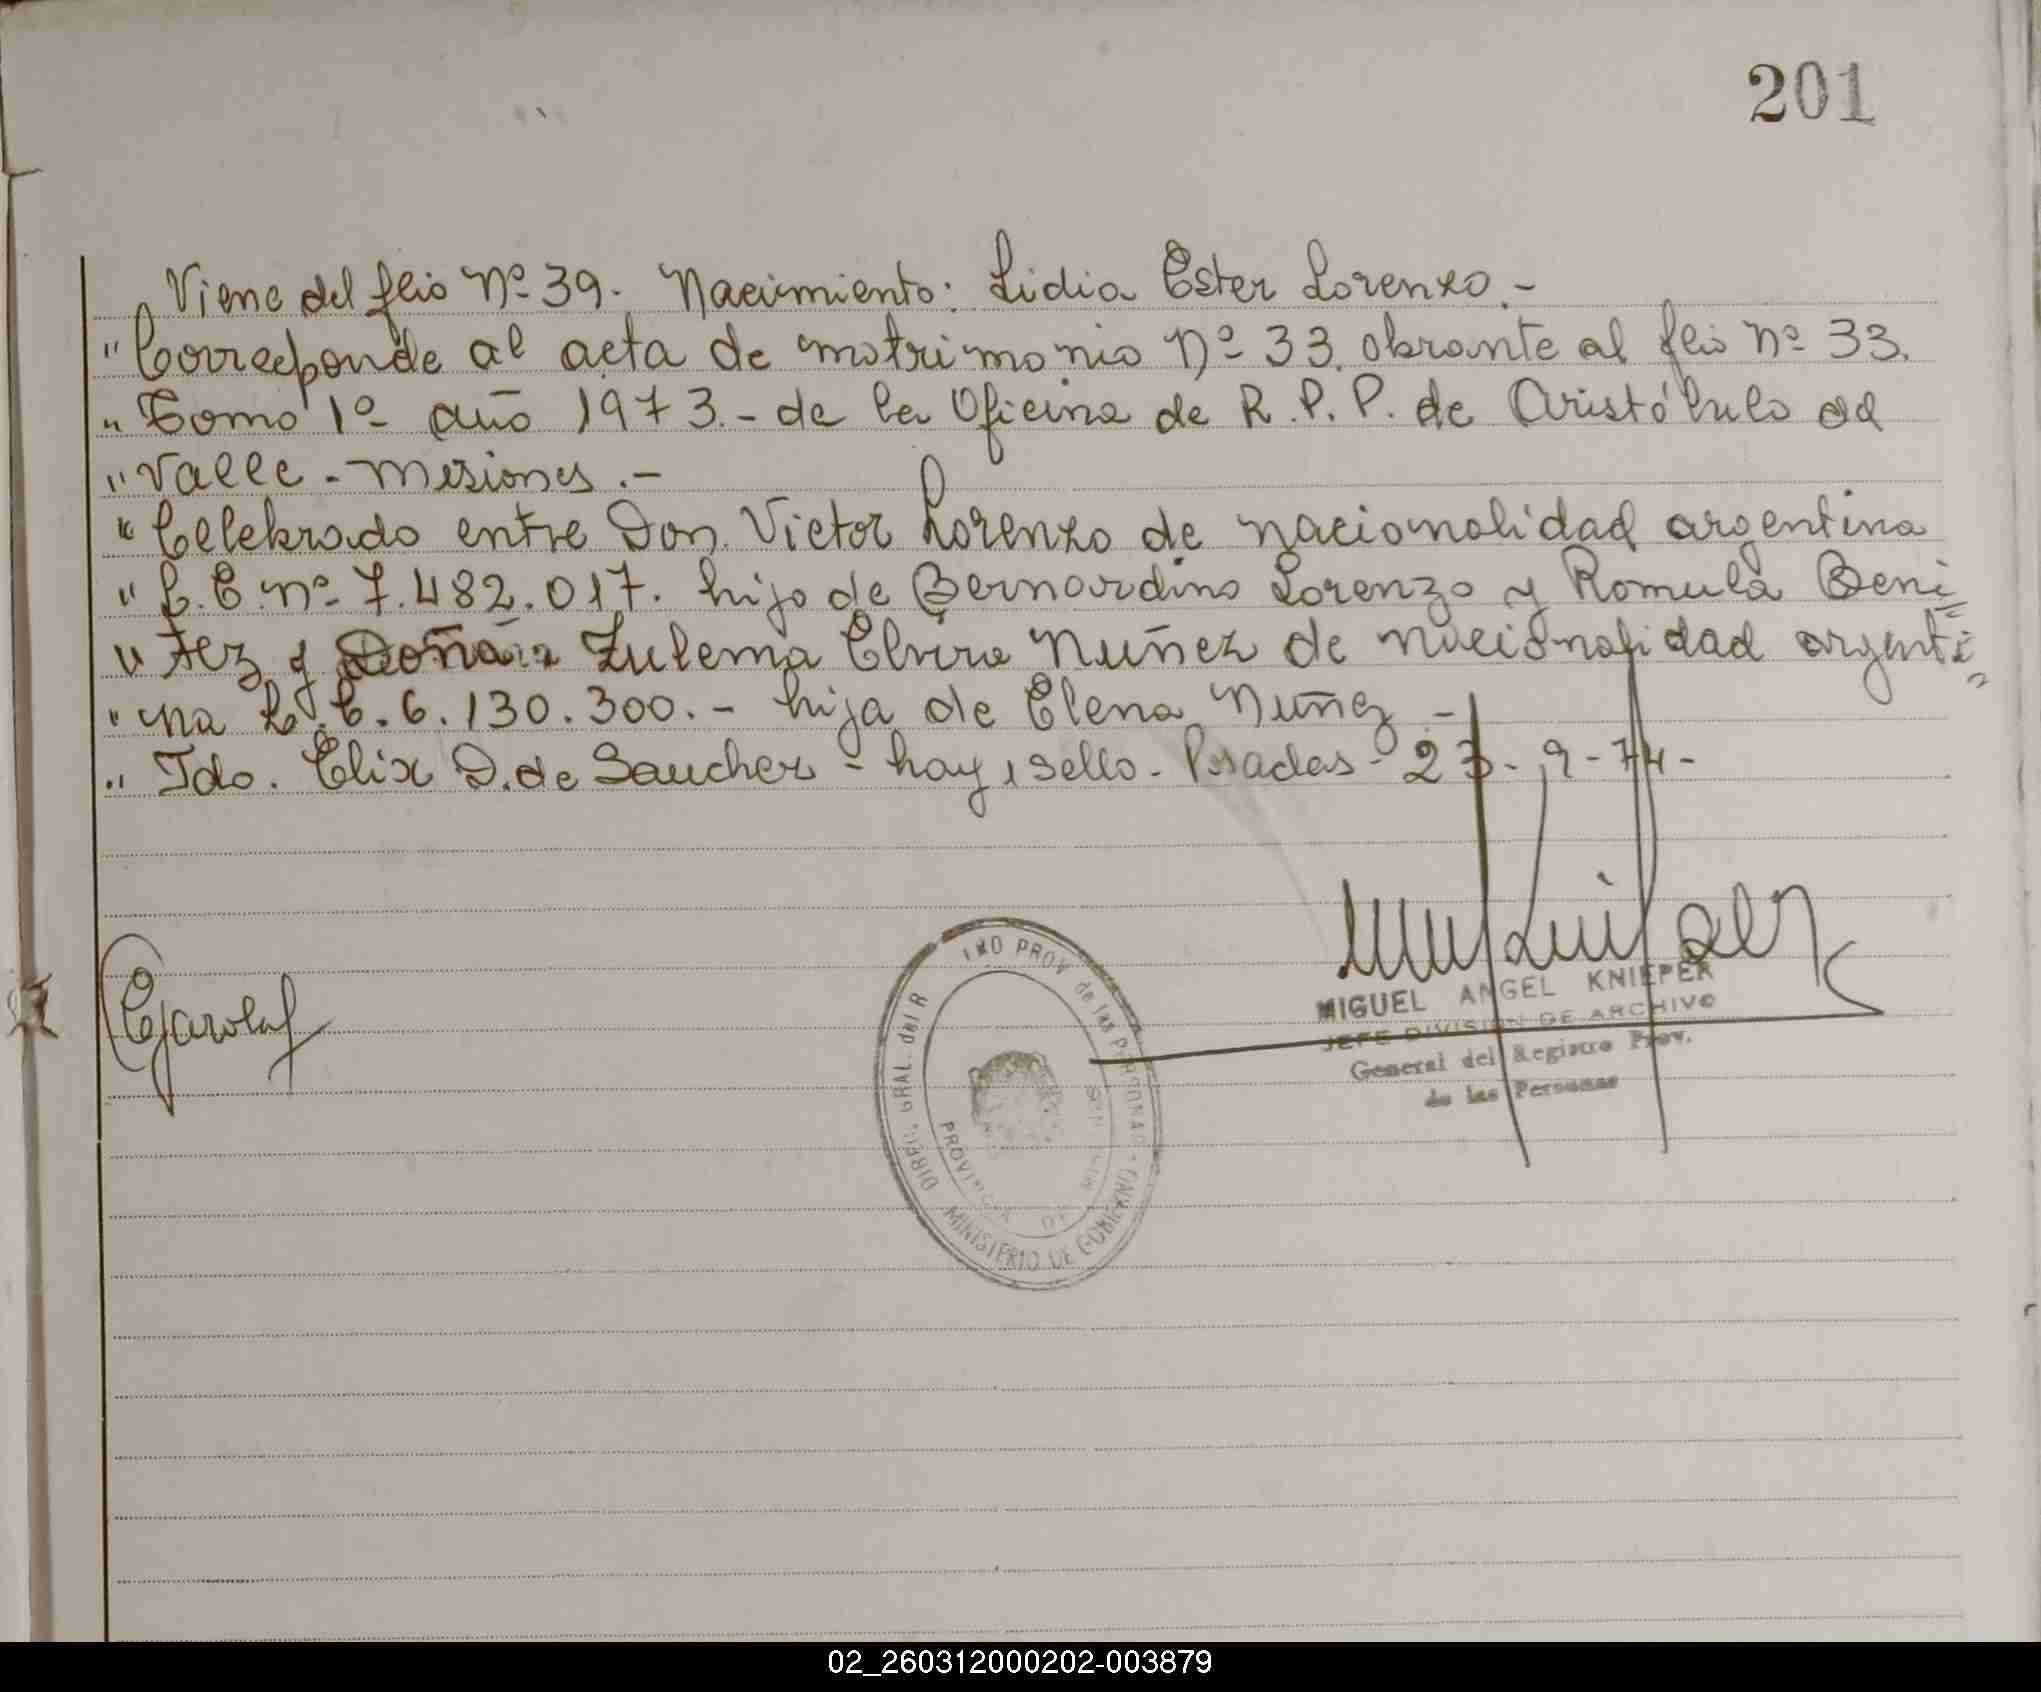 201
Viene del flio Nº 39. Nacimiento: Lidia Ester Lorenzo.-
"Corresponde al acta de matrimonio Nº 33. obrante al flio nº 33.
"Tomo 1º año 1973.- de la Oficina de R.P.P. de Aristóbulo del
"Valle - Misiones.-
"Celebrado entre Don Victor Lorenzo de nacionalidad argentina
"C.E. nº 7.482.017. hijo de Bernardino Lorenzo y Romula Beni=
"tez y Doña Zulema Elvira Nuñez de nacionalidad argenti=
"na L.C. 6.130.300.- hija de Elena Nuñez -
"Fdo. Elix D. de Saucher - hay 1 sello. Posadas - 23-9-74-
MIGUEL ANGEL KNIEPER
JEFE DIVISION DE ARCHIVO
General del Registro Prov.
de las Personas
DIREC. GRAL. del R PROV de las PERSONAS - MINISTERIO DE GOBIERNO
PROVINCIA DE
02_260312000202-003879